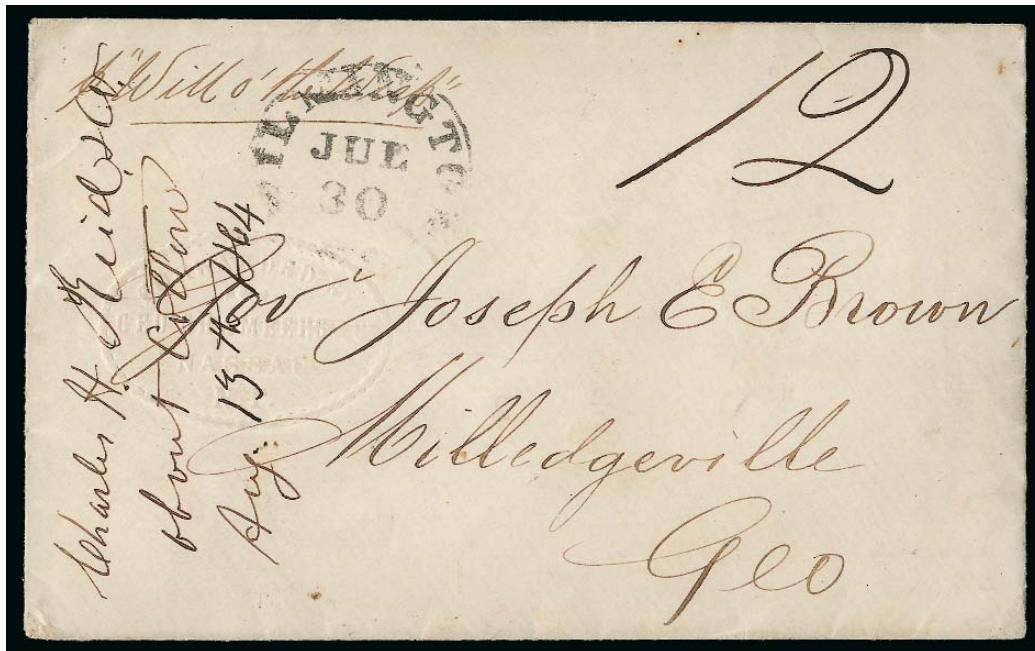 "Will o' the Wisp"
12
WILMINGTON
JUL
30
Gov Joseph E Brown
Milledgeville
Geo
Charles H. Reid & Co
about Cotton
Aug 13th 1864
NASSAU